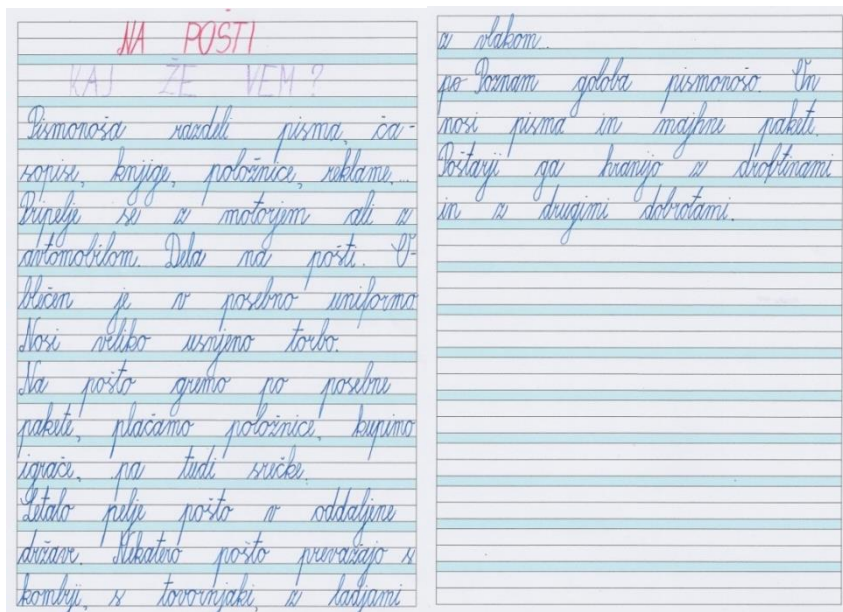 NA POŠTI
KAJ ŽE VEM?
Pismonoša razdeli pisma, ča-
sopise, knjige, položnice, reklame,...
Pripelje se z motorjem ali z
avtomobilom. Dela na pošti. O-
blečen je v posebno uniformo
Nosi veliko usnjeno torbo.
Na pošto gremo po posebne
pakete, plačamo položnice, kupimo
igrače, pa tudi srečke.
Letalo pelje pošto v oddaljene
države. Nekatero pošto prevažajo s
kombji, s tovornjaki, z ladjami
z vlakom...
po Poznam goloba pismonošo. On
nosi pisma in majhne pakete.
Poštarji ga hranijo z drobtinami
in z drugimi dobrotami.